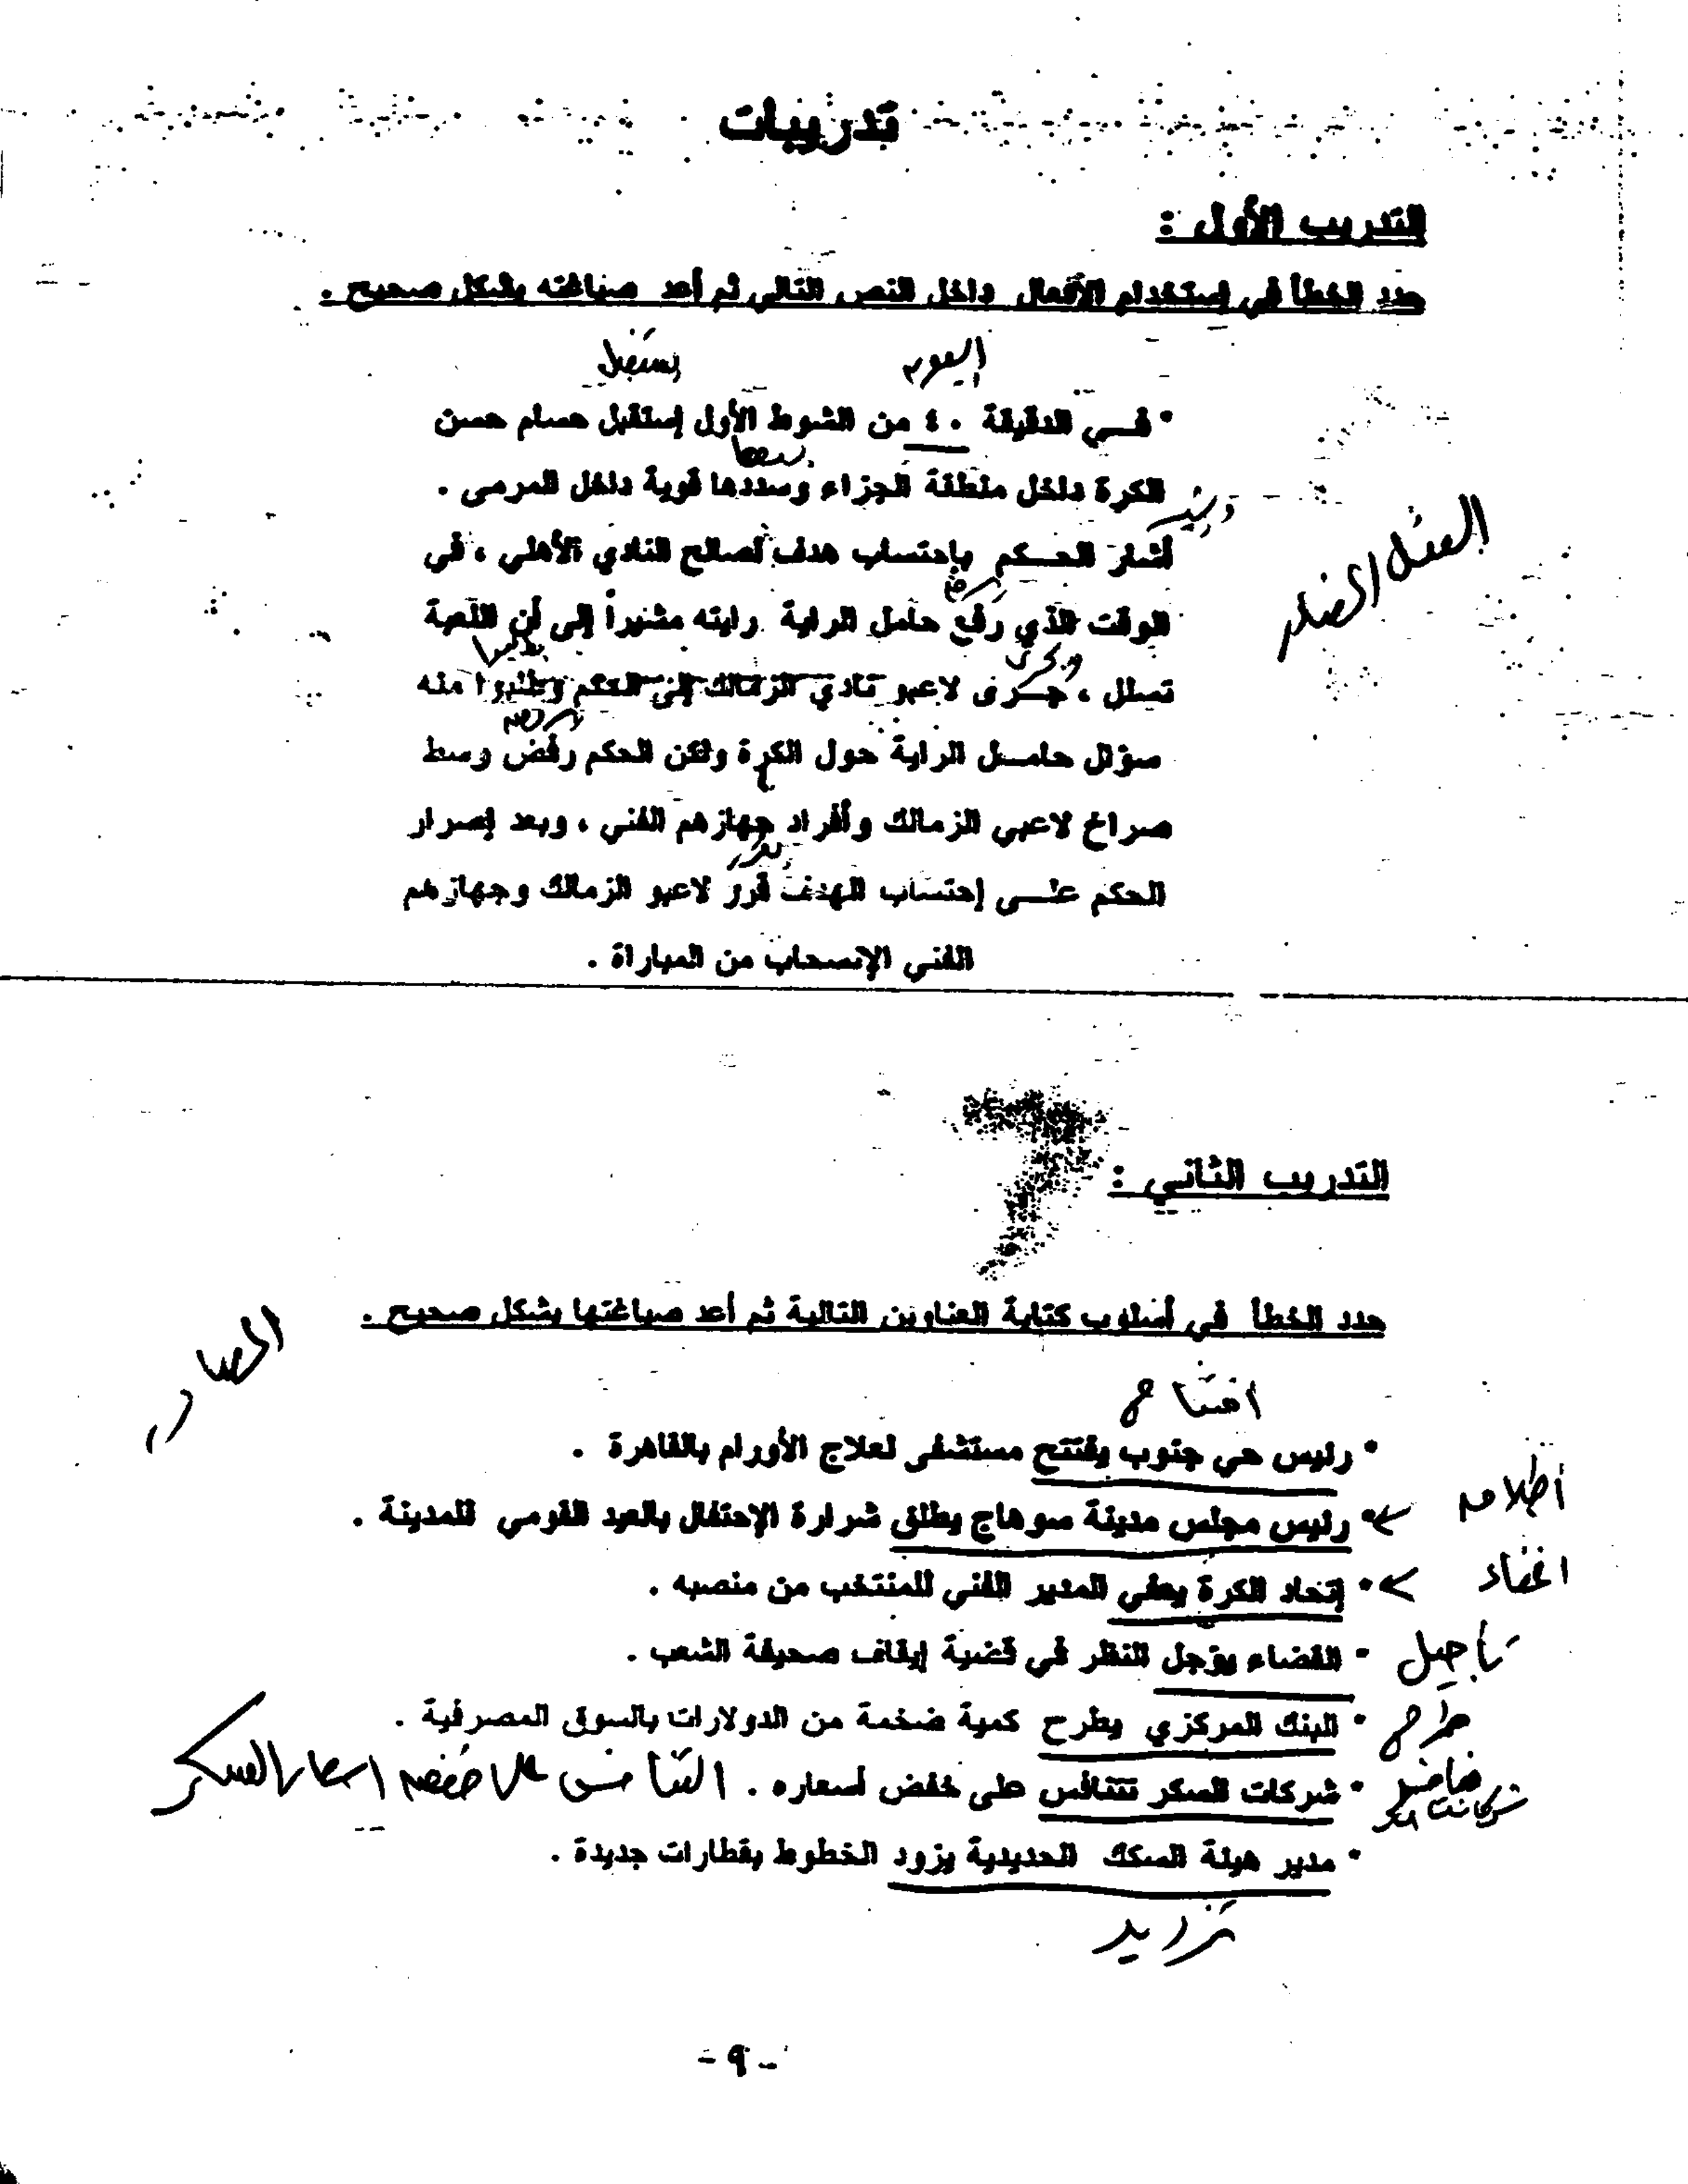 تدريبات
التدريب الأول :
حدد الخطأ في إستخدام الأفعال داخل النص التالي ثم أعد صياغته بشكل صحيح .
اليوم يستقبل
* في الدقيقة ٤٠ من الشوط الأول إستقبل حسام حسن
الكرة داخل منطقة الجزاء وسددها قوية داخل المرمى .
ويشير
أشار الحكم بإحتساب هدف لصالح النادي الأهلي ، في
الفعل المضارع
يرفع
الوقت الذي رفع حامل الراية رايته مشيراً إلى أن اللعبة
ويجرى
تسلل ، جرى لاعبو نادي الزمالك إلى الحكم وطلبوا منه
يرفض
سؤال حامل الراية حول الكرة ولكن الحكم رفض وسط
صراخ لاعبي الزمالك وأفراد جهازهم الفني ، وبعد إصرار
يقرر
الحكم على إحتساب الهدف قرر لاعبو الزمالك وجهازهم
الفني الإنسحاب من المباراة .
التدريب الثاني :
حدد الخطأ في أسلوب كتابة العناوين التالية ثم أعد صياغتها بشكل صحيح .
المصادر
افتتاح
* رئيس حي جنوب يفتتح مستشفى لعلاج الأورام بالقاهرة .
* رئيس مجلس مدينة سوهاج يطلق شرارة الإحتفال بالعيد القومي للمدينة .
* إتحاد الكرة يعفي المدير الفني للمنتخب من منصبه .
* القضاء يؤجل النظر في قضية إيقاف صحيفة الشعب . تأجيل
* البنك المركزي يطرح كمية ضخمة من الدولارات بالسوق المصرفية . طرح
* شركات السكر تتنافس على خفض أسعاره . التنافس على خفض اسعار السكر
* مدير هيئة السكك الحديدية يزود الخطوط بقطارات جديدة .
تزويد
- ٩ -